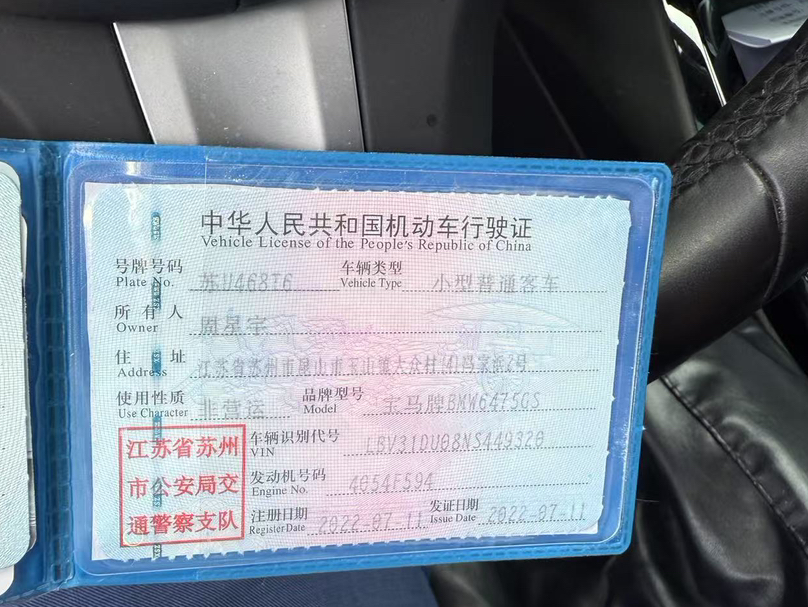 中华人民共和国机动车行驶证
Vehicle License of the People's Republic of China
号牌号码 苏U468T6 车辆类型 小型普通客车
Plate No. Vehicle Type
所有人 周星宇
Owner
住址 江苏省苏州市昆山市玉山镇大众村(4)冯家浜2号
Address
使用性质 非营运 品牌型号 宝马牌BMW6475GS
Use Character Model
江苏省苏州
市公安局交
通警察支队
车辆识别代号 LBV31DU08NS449320
VIN
发动机号码 4054F594
Engine No.
注册日期 2022-07-11 发证日期 2022-07-11
Register Date Issue Date